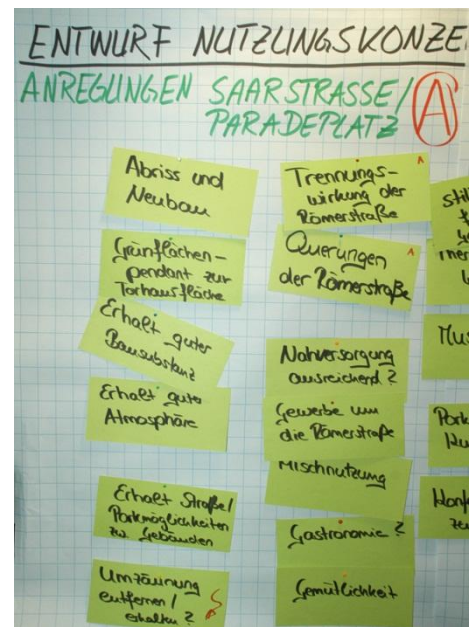 ENTWURF NUTZUNGSKONZE
ANREGUNGEN SAARSTRASSE/
PARADEPLATZ
A
Abriss und
Neubau
Grünflächen-
pendant zur
Torhausfläche
Erhalt guter
Bausubstanz
Erhalt guter
Atmosphäre
Erhalt Straße/
Parkmöglichkeiten
zw. Gebäuden
Umzäunung
entfernen/
erhalten?
Trennungs-
wirkung der
Römerstraße
Querungen
der Römerstraße
Nahversorgung
ausreichend?
Gewerbe um
die Römerstraße
Mischnutzung
Gastronomie?
Gemütlichkeit
Stil
Mus
Park
Konf